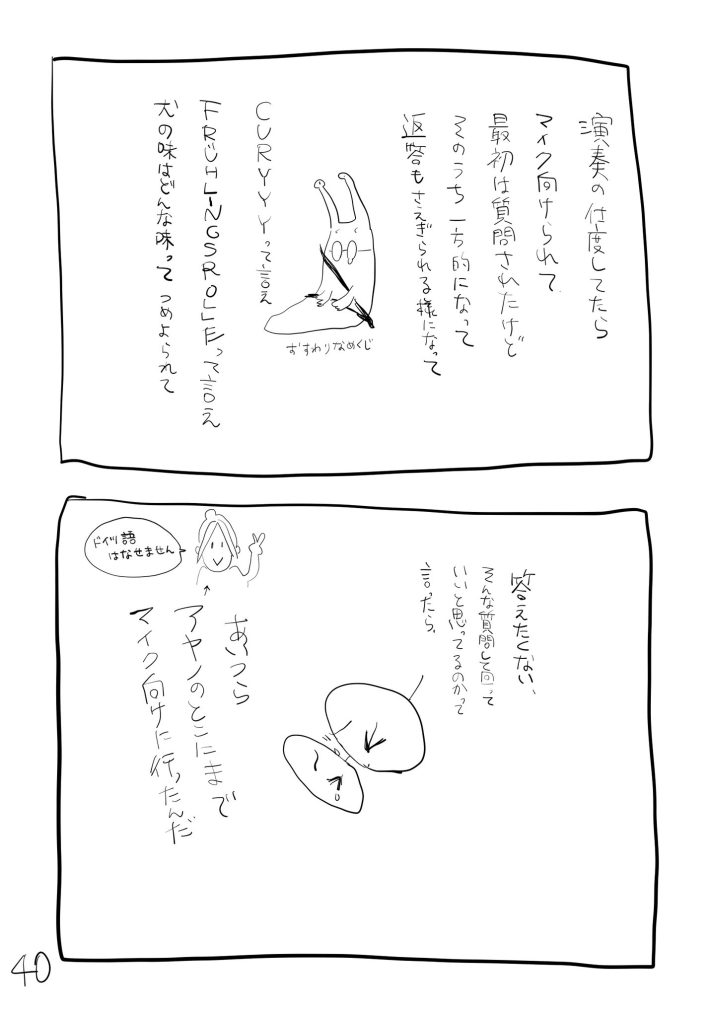 演奏の仕度してたら
マイク向けられて
最初は質問されたけど
そのうち一方的になって
返答もさえぎられる様になって
おすわりなめくじ
CURYYYって言え
FRÜHLINGSROLLEって言え
犬の味はどんな味ってつめよられて
答えたくない、
そんな質問して回って
いいと思ってるのかって
言ったら、
あいつら
アヤノのとこにまで
マイク向けに行ったんだ
ドイツ語
はなせません
40